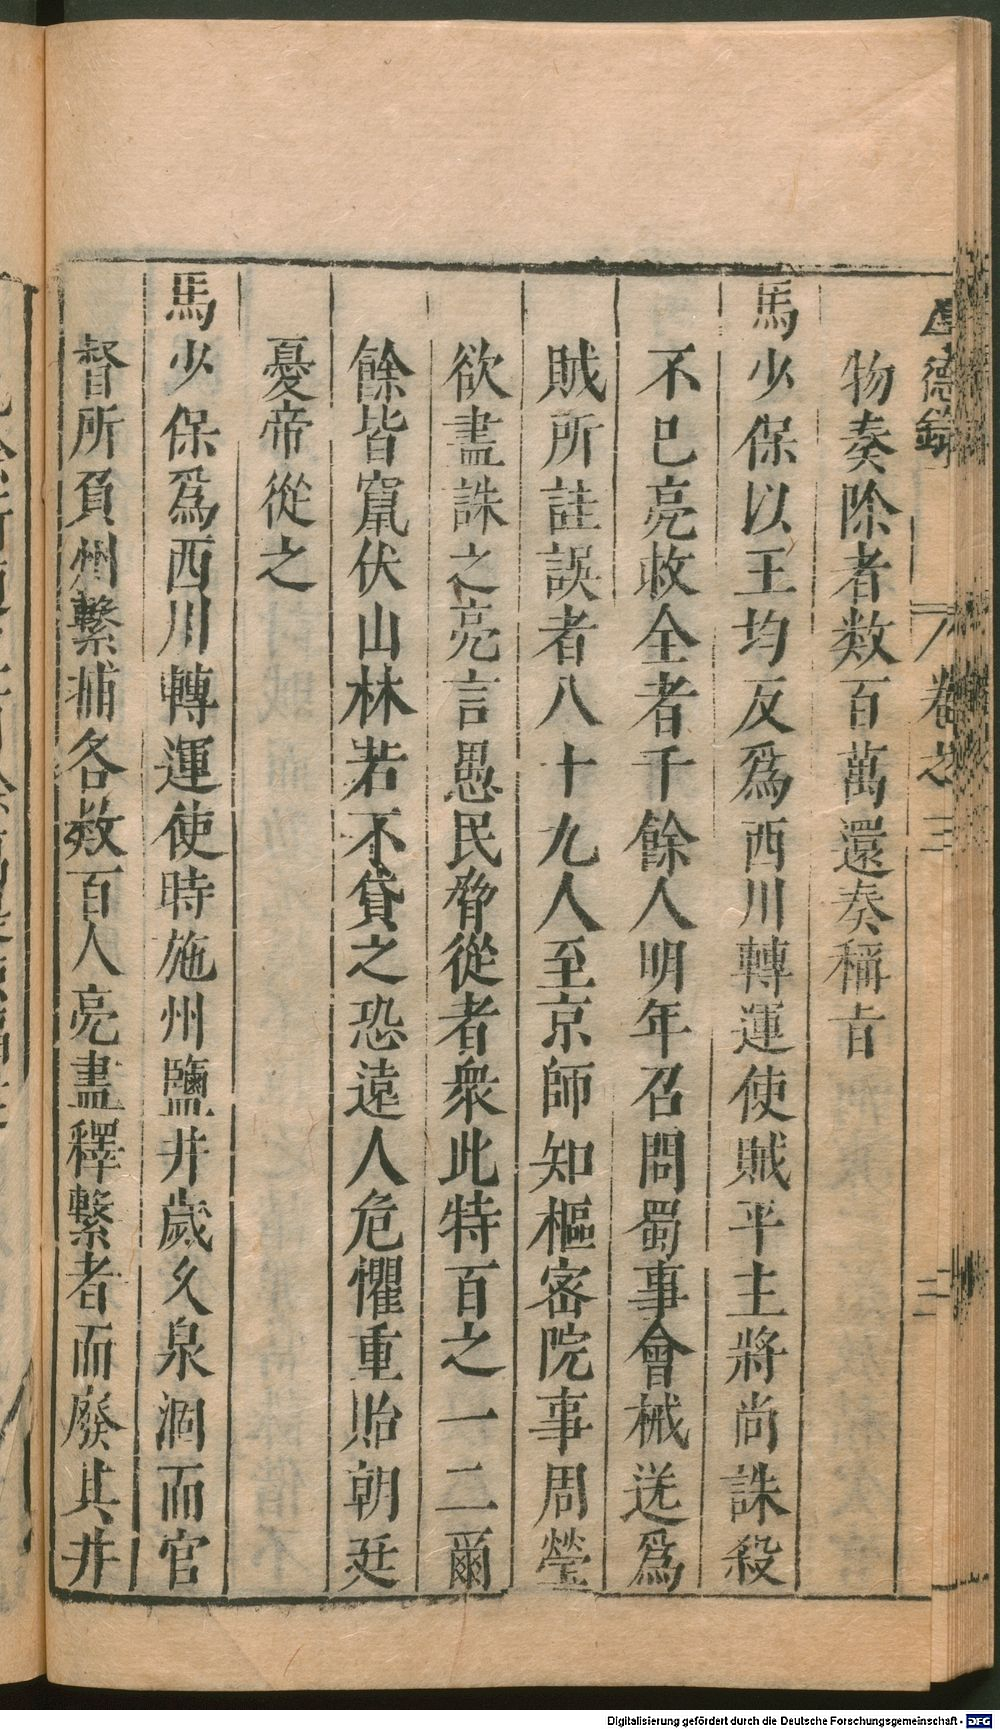 厚德錄
卷之三
二
物奏除者数百萬還奏稱旨
馬少保以王均反爲西川轉運使賊平主將尚誅殺
不已亮救全者千餘人明年召問蜀事會械送爲
賊所詿誤者八十九人至京師知樞密院事周瑩
欲盡誅之亮言愚民脅從者衆此特百之一二爾
餘皆竄伏山林若不貸之恐遠人危懼重貽朝廷
憂帝從之
馬少保爲西川轉運使時施州鹽井歲久泉涸而官
督所負州繫捕各数百人亮盡釋繫者而廢其井
Digitalisierung gefördert durch die Deutsche Forschungsgemeinschaft - DFG